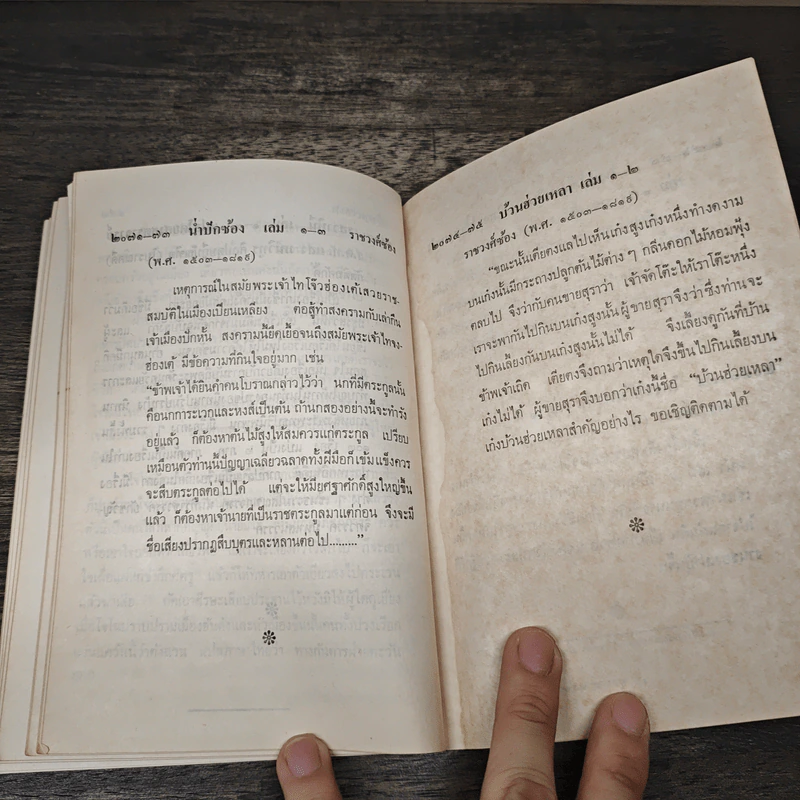 ๒๐๗๑—๗๓ น่ำปักซ้อง เล่ม ๑—๓ ราชวงศ์ซ้อง
(พ.ศ. ๑๕๐๓—๑๘๑๙)
เหตุการณ์ในสมัยพระเจ้าไทโจ๊วฮ่องเต้เสวยราช-
สมบัติในเมืองเปียนเหลียง ต่อสู้ทำสงครามกับเล่ากึน
เจ้าเมืองปักหั้น สงครามนี้ยืดเยื้อจนถึงสมัยพระเจ้าไทจง-
ฮ่องเต้ มีข้อความที่กินใจอยู่มาก เช่น
“ข้าพเจ้าได้ยินคำคนโบราณกล่าวไว้ว่า นกที่มีตระกูลนั้น
คือนกการะเวกและหงส์เป็นต้น ถ้านกสองอย่างนี้จะทำรัง
อยู่แล้ว ก็ต้องหาต้นไม้สูงให้สมควรแก่ตระกูล เปรียบ
เหมือนตัวท่านนี้ปัญญาเฉลียวฉลาดทั้งฝีมือก็เข้มแข็งควร
จะสืบตระกูลต่อไปได้ แต่จะให้มียศฐาศักดิ์สูงใหญ่ขึ้น
แล้ว ก็ต้องหาเจ้านายที่เป็นราชตระกูลมาแต่ก่อน จึงจะมี
ชื่อเสียงปรากฏสืบบุตรและหลานต่อไป.........”
๒๐๗๔—๗๕ บ้วนฮ่วยเหลา เล่ม ๑—๒
ราชวงศ์ซ้อง (พ.ศ. ๑๕๐๓—๑๘๑๙)
“ขณะนั้นเตียตงแลไปเห็นเก๋งสูงเก๋งหนึ่งทำงดงาม
บนเก๋งนั้นมีกระถางปลูกต้นไม้ต่าง ๆ กลิ่นดอกไม้หอมฟุ้ง
ตลบไป จึงว่ากับคนขายสุราว่า เจ้าจัดโต๊ะให้เราโต๊ะหนึ่ง
เราจะพากันไปกินบนเก๋งสูงนั้น ผู้ขายสุราจึงว่าซึ่งท่านจะ
ไปกินเลี้ยงกันบนเก๋งสูงนั้นไม่ได้ จึงเลี้ยงดูกันที่บ้าน
ข้าพเจ้าเถิด เตียตงจึงถามว่าเหตุใดจึงขึ้นไปกินเลี้ยงบน
เก๋งไม่ได้ ผู้ขายสุราจึงบอกว่าเก๋งนี้ชื่อ “บ้วนฮ่วยเหลา”
เก๋งบ้วนฮ่วยเหลาสำคัญอย่างไร ขอเชิญติดตามได้